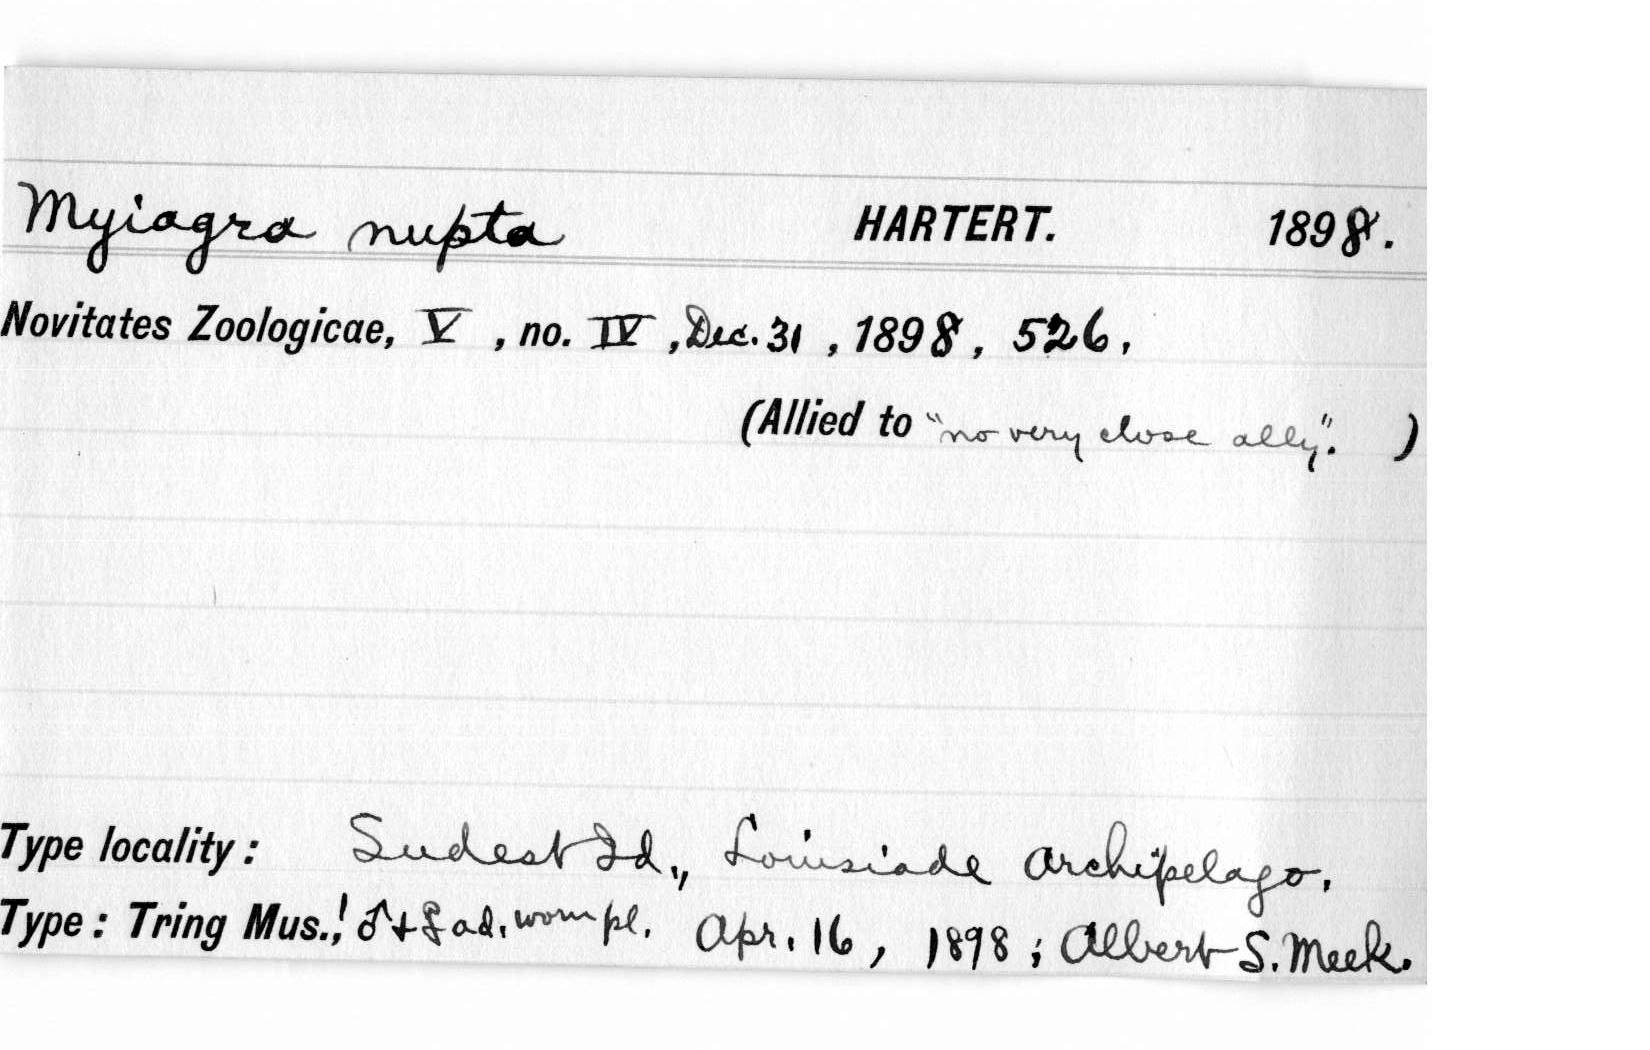 Myiagra nupta HARTERT. 1898.
Novitates Zoologicae, V, no. IV, Dec. 31, 1898, 526.
(Allied to "no very close ally". )
Type locality: Sudest Id., Louisiade Archipelago.
Type: Tring Mus.,! ♂+♀ ad. worn pl. Apr. 16, 1898; Albert S. Meek.